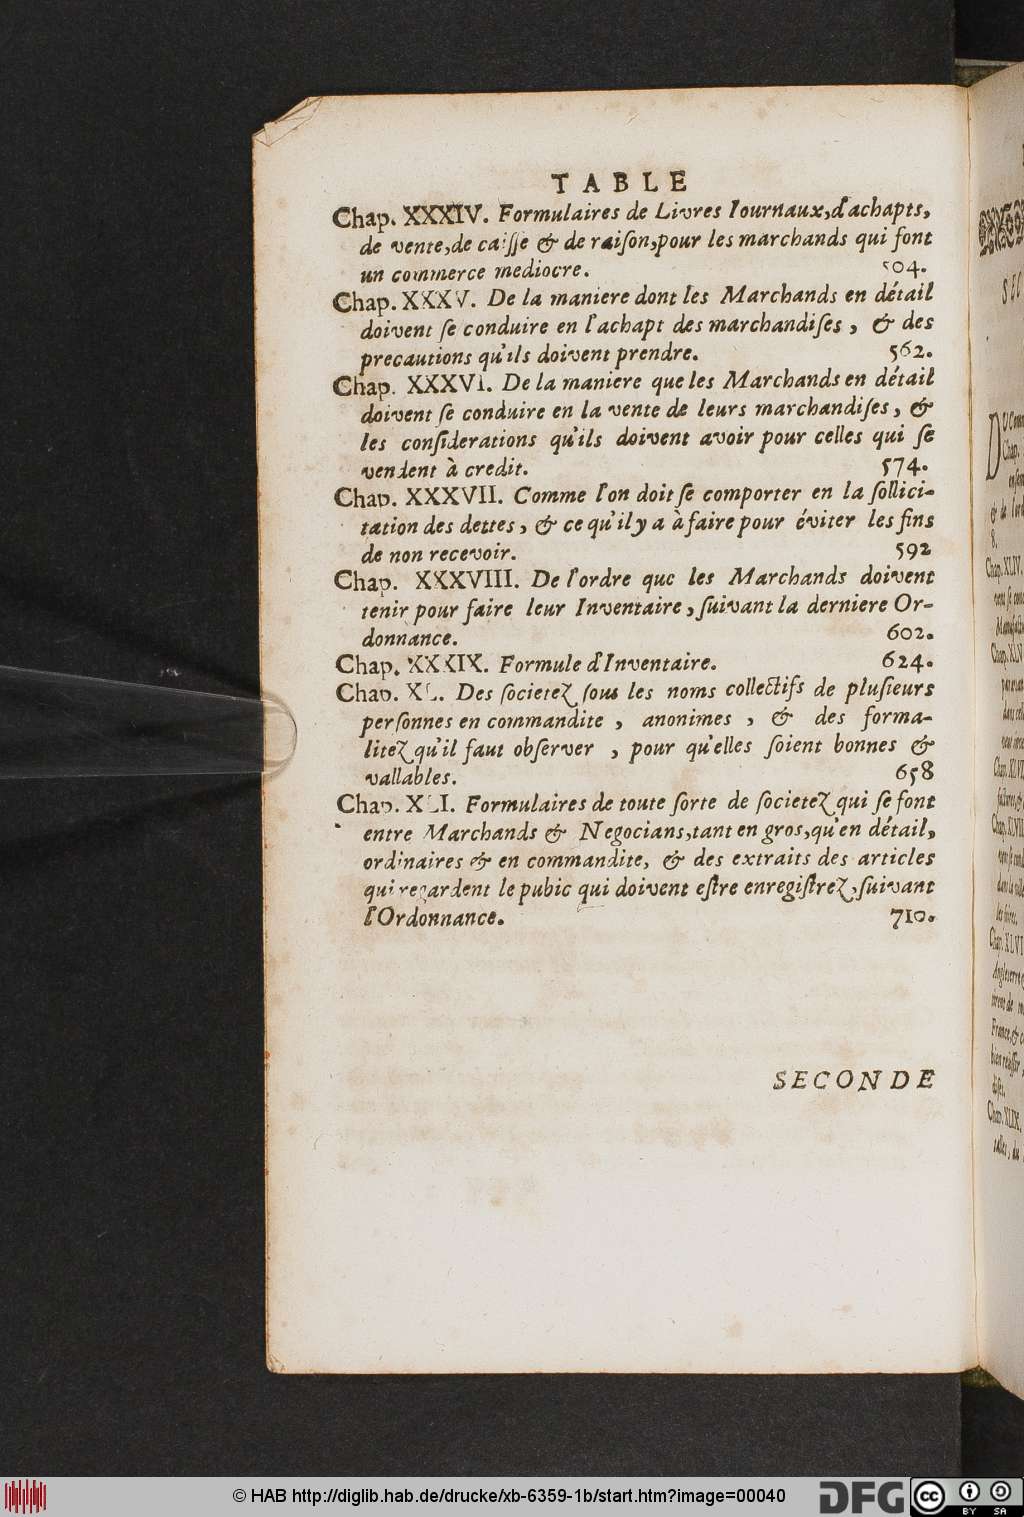 TABLE
Chap. XXXIV. Formulaires de Livres Iournaux, d'achapts,
de vente, de caisse & de raiſon, pour les marchands qui font
un commerce mediocre. 504.
Chap. XXXV. De la maniere dont les Marchands en détail
doivent ſe conduire en l'achapt des marchandiſes, & des
precautions qu'ils doivent prendre. 562.
Chap. XXXVI. De la maniere que les Marchands en détail
doivent ſe conduire en la vente de leurs marchandiſes, &
les conſiderations qu'ils doivent avoir pour celles qui ſe
vendent à credit. 574.
Chap. XXXVII. Comme l'on doit ſe comporter en la ſollici-
tation des dettes, & ce qu'il y a à faire pour éviter les fins
de non recevoir. 592
Chap. XXXVIII. De l'ordre que les Marchands doivent
tenir pour faire leur Inventaire, ſuivant la derniere Or-
donnance. 602.
Chap. XXXIX. Formule d'Inventaire. 624.
Chap. XL. Des ſocietez ſous les noms collectifs de pluſieurs
perſonnes en commandite, anonimes, & des forma-
litez qu'il faut obſerver, pour qu'elles ſoient bonnes &
vallables. 658
Chap. XLI. Formulaires de toute ſorte de ſocietez qui ſe font
entre Marchands & Negocians, tant en gros, qu'en détail,
ordinaires & en commandite, & des extraits des articles
qui regardent le pubic qui doivent eſtre enregiſtrez, ſuivant
l'Ordonnance. 710.
SECONDE
© HAB http://diglib.hab.de/drucke/xb-6359-1b/start.htm?image=00040
DFG
cc BY SA